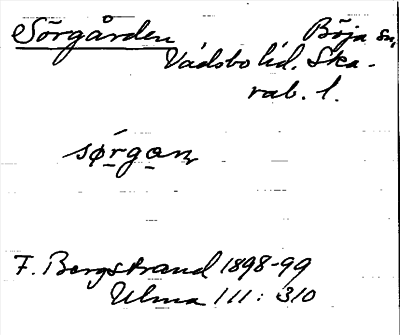 Sörgården Böja sn,
Vadsbo hd. Ska-
rab. l.
sørgan
F. Bergstrand 1898-99
Ulma 111: 310